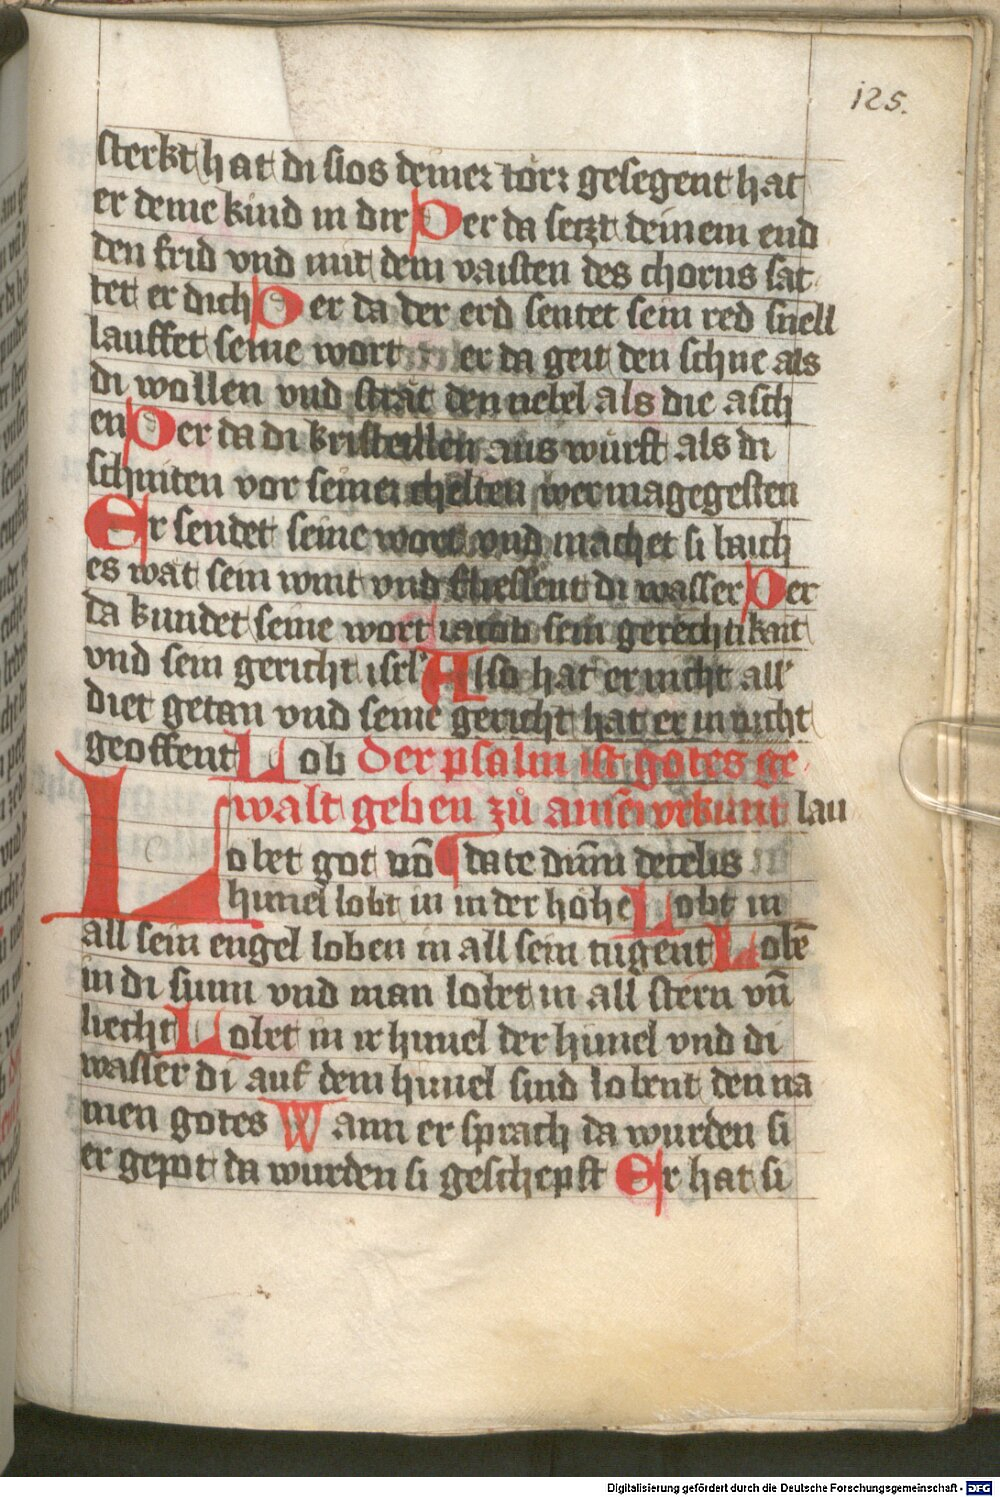 125.
sterkt hat di slos deiner törr gesegent hat
er deine kind in dir Der da setzt deinem end
den frid vnd mit dem vaisten des chorns sat
tet er dich Der da der erd sentet sein red snell
lauffet seine wort er da geit den schne als
di wollen vnd strät den nebel als die asch
en Der da di kristallen aus würft als di
schniten vor seiner chelten wer mag gesten
Er sendet seine wort vnd machet si waich
es wät sein wint vnd fliessent di wasser Der
da kundet seine wort iacob sein gerechtikait
vnd sein gericht isrl Also hat er nicht all
diet getan vnd seine gericht hat er in nicht
geoffent Lob Der psalm ist gotes ge
walt geben zů ainer vrkunt Lau
Lobet got võ date dnm de celis
himel lobt in in der höhe Lobt in
all sein engel loben in all sein tugent Lobt
in di sunn vnd man lobet in all stern vnd
liecht Lobet in ir himel der himel vnd di
wasser di auf dem himel sind lobent den na
men gotes Wann er sprach da wurden si
er gepot da wurden si geschepft Er hat si
Digitalisierung gefördert durch die Deutsche Forschungsgemeinschaft - DFG